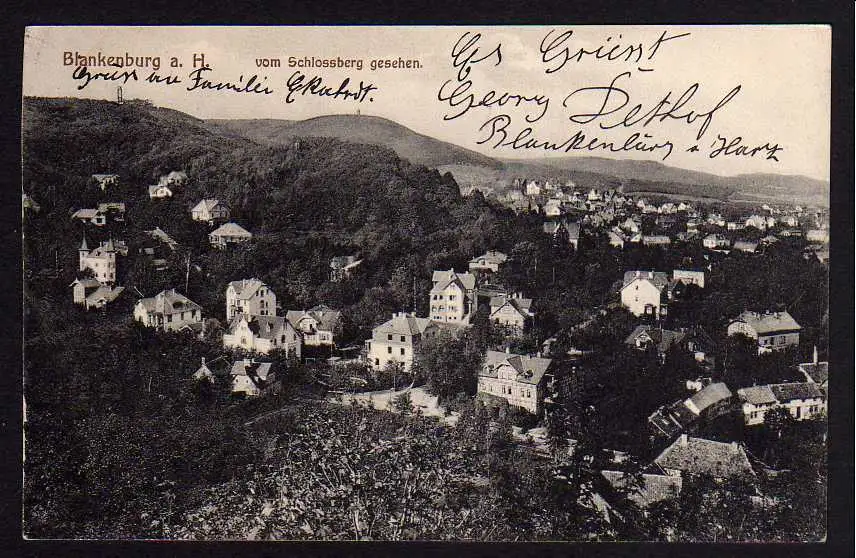 Blankenburg a. H. vom Schlossberg gesehen.
Gruss an Familie Ekardt.
Es Grüsst
Georg Dethof
Blankenburg a Harz